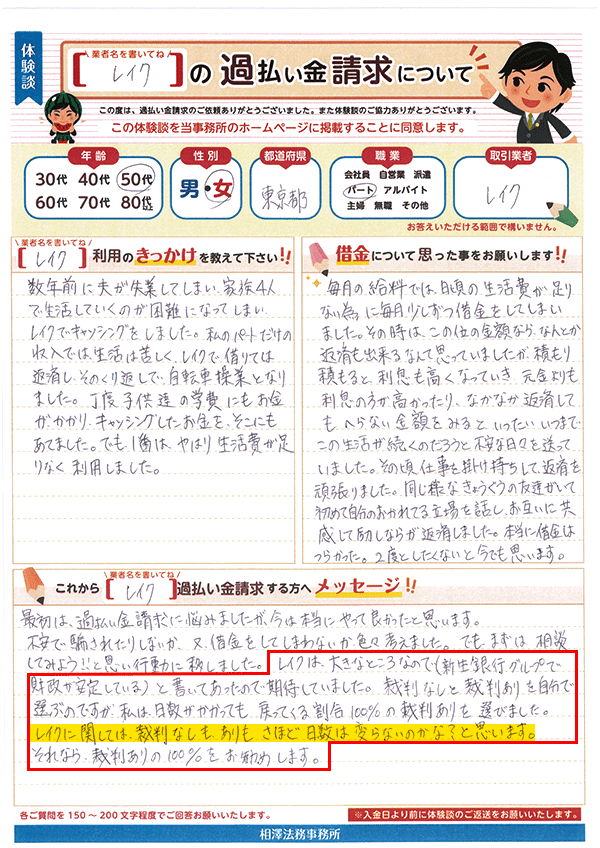 体験談
業者名を書いてね
[レイク]の過払い金請求について
この度は、過払い金請求のご依頼ありがとうございました。また体験談のご協力ありがとうございます。
この体験談を当事務所のホームページに掲載することに同意します。
年齢
30代 40代 50代
60代 70代 80代以上
性別
男・女
都道府県
東京都
職業
会社員 自営業 派遣
パート アルバイト
主婦 無職 その他
取引業者
レイク
お答えいただける範囲で構いません。
業者名を書いてね
[レイク]利用のきっかけを教えて下さい!!
数年前に夫が失業してしまい、家族4人
で生活していくのが困難になってしまい
レイクでキャッシングをしました。私のパートだけの
収入では、生活は苦しく、レイクで借りては
返済し、そのくり返しで、自転車操業となり
ました。丁度子供達の学費にもお金
がかかり、キャッシングしたお金を、そこにも
あてました。でも1番は、やはり生活費が足
りなく利用しました。
借金について思った事をお願いします!!
毎月の給料では、日頃の生活費が足り
ない為に毎月少しずつ借金をしてしまい
ました。その時は、この位の金額なら、なんとか
返済も出来るなんて思っていましたが、積もり
積もると、利息も高くなっていき、元金よりも
利息の方が高かったり、なかなか返済して
もへらない金額をみると、いったいいつまで
この生活が続くのだろうと不安な日々を送って
いました。その頃仕事を掛け持ちして、返済を
頑張りました。同じ様なきょうぐうの友達がいて
初めて自分のおかれてる立場を話し、お互いに共
感して励しながら返済しました。本当に借金は
つらかった。2度としたくないと今でも思います。
業者名を書いてね
これから[レイク]過払い金請求する方へメッセージ!!
最初は、過払い金請求に悩みましたが、今は本当にやって良かったと思います。
不安で騙されたりしないか、又、借金をしてしまわないか色々考えました。でも、まずは、相談
してみよう!!と思い行動に移しました。レイクは、大きなところなので(新生銀行グループで
財政が安定している)と書いてあったので期待していました。裁判なしと裁判ありを自分で
選ぶのですが、私は、日数がかかっても、戻ってくる割合100%の裁判ありを選びました。
レイクに関しては、裁判なしも、ありも、さほど日数は変らないのかな?と思います。
それなら、裁判ありの100%をお勧めします。
各ご質問を150～200文字程度でご回答お願いいたします。
※入金日より前に体験談のご返送をお願いいたします。
相澤法務事務所